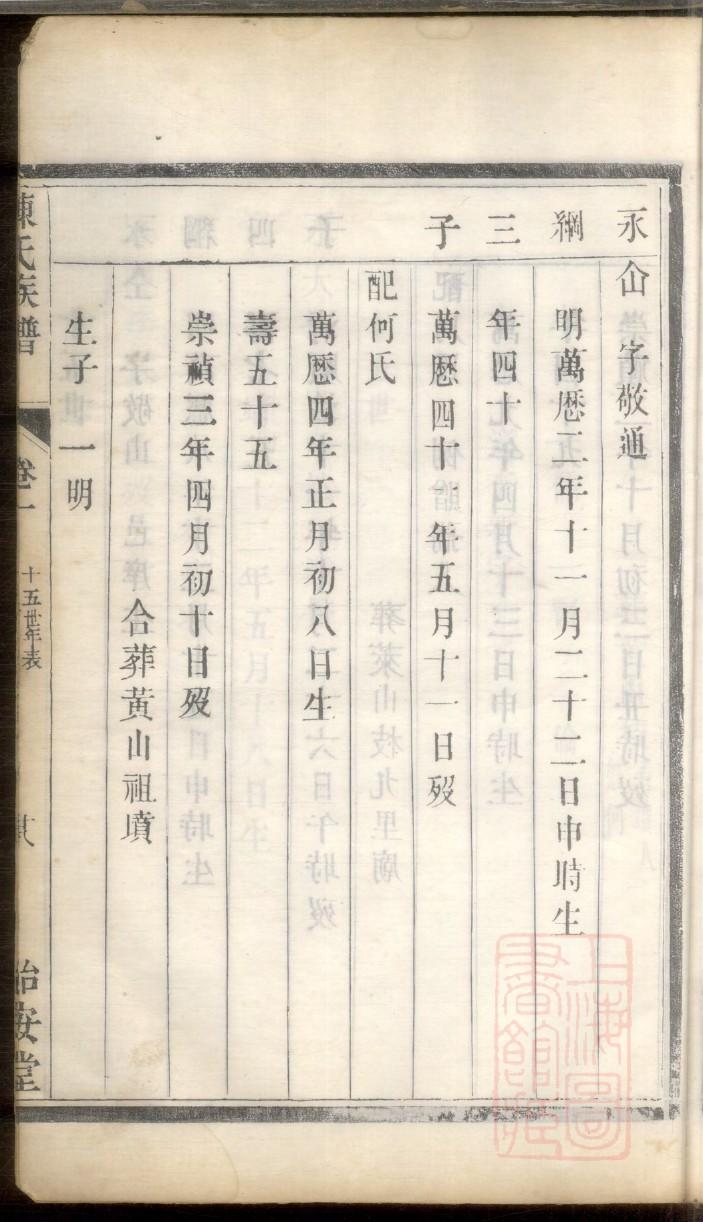 永仚字敬通
綱
明萬厯二年十一月二十二日申時生
三
年四十
子
萬厯四十一年五月十一日歿
配何氏
萬厯四年正月初八日生
壽五十五
崇禎三年四月初十日歿
合葬黃山祖墳
生子一明
陳氏族譜
卷一
十五世年表
怡安堂
上海圖
書館藏